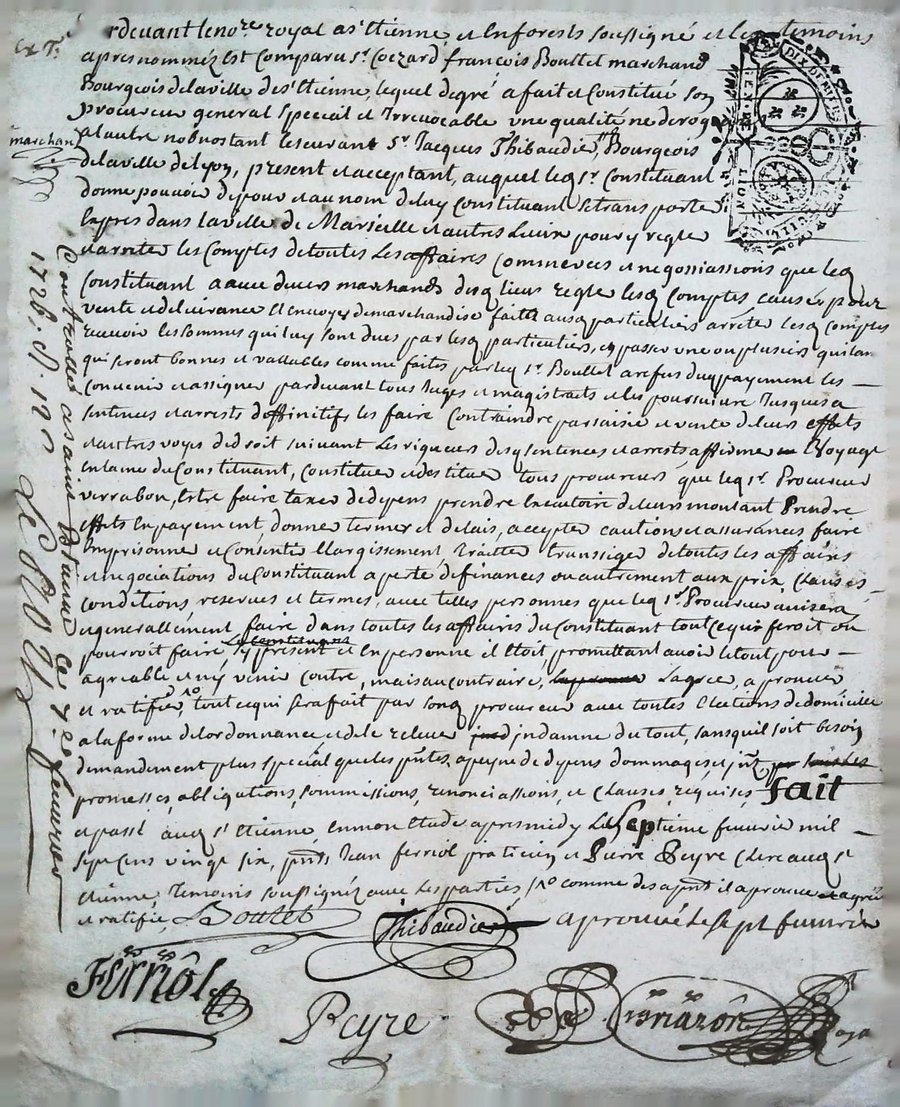 rdevant le no.re royal a st Etienne, et En forests soussigné et les temoins
apres nommez Est Comparu sr. Coezard francois Boullet marchand
Bourgeois de la ville de st Etienne, lequel de gré a fait et Constitué son
procureur general special et Irrevocable une qualite ne derog
al autre nobnostant le suivant sr. Jacques Thibaudier, Bourgeois
marchand
de la ville de Lyon, present et acceptant, auquel leq sr. Constituant
donne pouvoir de pour et au nom de luy Constituant se transporter
Expres dans la ville de Marseille et autres Lieux pour y regler
et arreter les Comptes de toutes Les affaires Commerces et negossiassions que leq
Constituant a avec divers marchands desq lieux regler lesq Comptes causés pour
vente et delivrance et envoy de marchandise faites ausq particuliers arreter lesq Comptes
recevoir les sommes qui luy sont dues par lesq particuliers, en passer une ou plusieurs quitan
qui seront bonnes et vallables comme faites par leq sr. Boullet a refus duq payement les
Convenir et assigner pardevant tous Juges et magistrats et les poursuivre Jusques a
sentences et arrests deffinitifs les faire Contraindre par saisie et vente de leurs effets
et autres voyes de droit suivant Les rigueurs desq sentences et arrests affirmer Voyage
En lame du Constituant, Constituer et destituer tous procureurs que leq sr. Procureur
verra bon, Estre faire taxer de depens prendre Executoire de leurs montant Prendre
effets En payement, donner termes et delais, accepter cautions et assurances, faire
Emprisonner et Consentir Elargissement, Traitter transsiger de toutes les affaires
et negociations du Constituant a perte de finances ou autrement aux prix, Clauses
conditions, reserves et termes, avec telles personnes que leq sr. Procureur avisera
et generallement faire dans toutes les affaires du Constituant tout ce qui feroit ou
Le Constituant
pourroit faire sy present et En personne il Etoit, promettant avoir le tout pour
agreable et n'y venir Contre, mais au contraire, Lagreer, aprouver
et ratifier, tout ce qui sera fait par sond procureur avec toutes Elections de domicile
a la forme de lordonnance et de le relever indamne du tout, sans quil soit besoin
de mandement plus special que les pntes, a peyne de depens dommages et
promesses obligations, soumissions, renonciassions, et Clauses requises fait
et passé auq st Etienne En mon Etude apres midy Le septieme fevrier mil
sept cens vingt six, pnts Jean ferriol praticien et Pierre Peyre Clerc auq st
Etienne, Temoins soussignez avec Les parties
et ratifie, Boulet Thibaudier aprouvé le sept fevrier
Ferriôl
Peyre
Controllé a saint Etienne Ce 7.e fevrier
1726
DIX DENIERS
LION